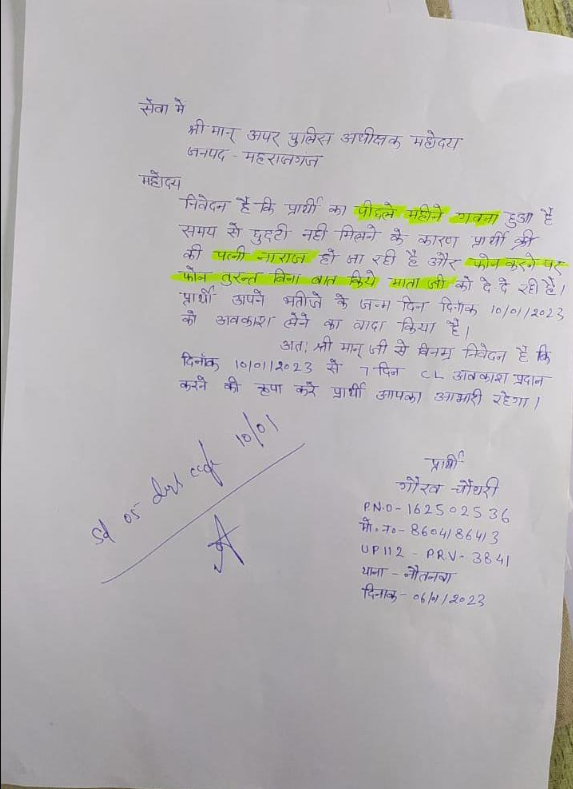 सेवा मे
श्री मान् अपर पुलिस अधीक्षक महोदय
जनपद - महराजगंज
महोदय
निवेदन है कि प्रार्थी का पीछले महीने गवना हुआ है
समय से छुट्टी नही मिलने के कारण प्रार्थी की
की पत्नी नाराज हो जा रही है और फोन करने पर
फोन तुरन्त बिना बात किये माता जी को दे दे रही है।
प्रार्थी अपने भतीजे के जन्म दिन दिनांक 10/01/2023
को अवकाश लेने का वादा किया है।
अतः श्री मान् जी से विनम्र निवेदन है कि
दिनांक 10/01/2023 से 7 दिन CL अवकाश प्रदान
करने की कृपा करे प्रार्थी आपका आभारी रहेगा।
प्रार्थी
गौरव चौधरी
P.N.O - 162502536
मो. न० - 8604186413
UP112 - PRV - 3841
थाना - नौतनवा
दिनांक - 06/01/2023
05 days 10/01